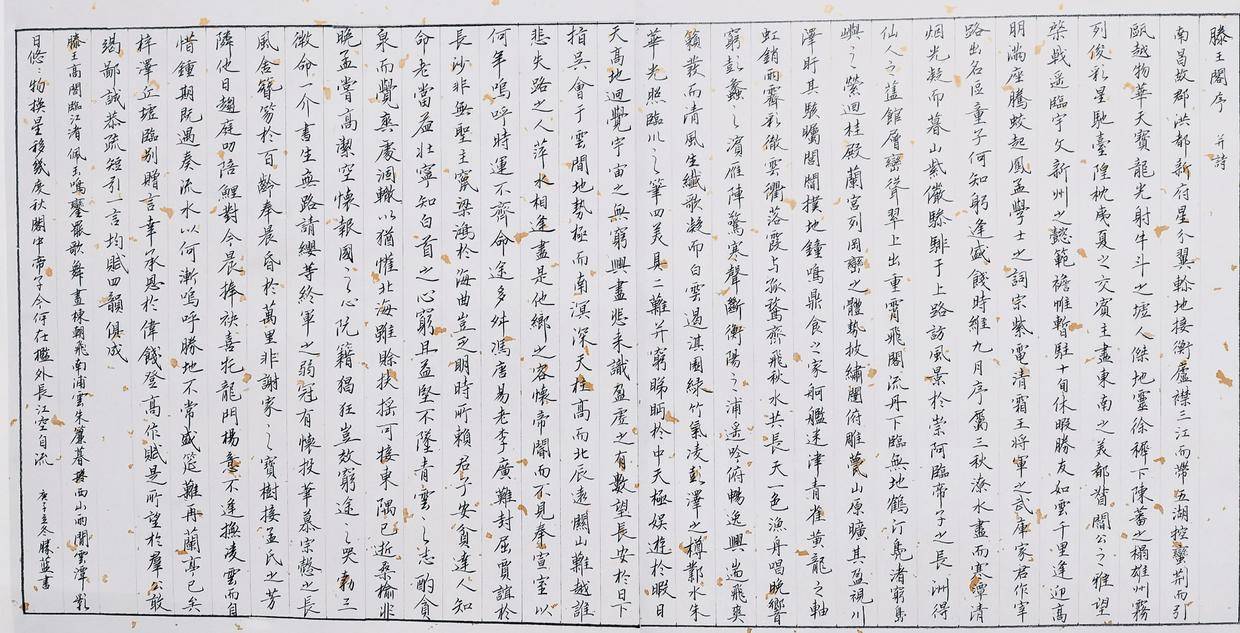 滕王閣序 并詩
南昌故郡洪都新府星分翼軫地接衡廬襟三江而帶五湖控蠻荆而引
甌越物華天寶龍光射牛斗之墟人傑地靈徐穉下陳蕃之榻雄州霧
列俊彩星馳臺隍枕夷夏之交賓主盡東南之美都督閻公之雅望
棨戟遥臨宇文新州之懿範襜帷暫駐十旬休暇勝友如雲千里逢迎高
朋滿座騰蛟起鳳孟學士之詞宗紫電清霜王將軍之武庫家君作宰
路出名區童子何知躬逢盛餞時維九月序屬三秋潦水盡而寒潭清
烟光凝而暮山紫儼驂騑于上路訪風景於崇阿臨帝子之長洲得
仙人之舊館層巒聳翠上出重霄飛閣流丹下臨無地鶴汀鳧渚窮島
嶼之縈迴桂殿蘭宮列岡巒之體勢披繡闥俯雕甍山原曠其盈視川
澤盱其駭矚閭閻撲地鐘鳴鼎食之家舸艦迷津青雀黃龍之軸
虹銷雨霽彩徹雲衢落霞与孤鶩齊飛秋水共長天一色漁舟唱晚響
窮彭蠡之濱雁陣驚寒聲斷衡陽之浦遥吟俯暢逸興遄飛爽
籟發而清風生纖歌凝而白雲遏淇園緑竹氣凌彭澤之樽鄴水朱
華光照臨川之筆四美具二難并窮睇眄於中天極娱遊於暇日
天高地迥覺宇宙之無窮興盡悲来識盈虚之有數望長安於日下
指吴會于雲間地勢極而南溟深天柱高而北辰遠關山難越誰
悲失路之人萍水相逢盡是他鄉之客懷帝閽而不見奉宣室以
何年嗚呼時運不齊命途多舛馮唐易老李廣難封屈賈誼於
長沙非無聖主竄梁鴻於海曲豈乏明時所賴君子安貧達人知
命老當益壯寧知白首之心窮且益堅不墜青雲之志酌貪
泉而覺爽處涸轍以猶懽北海雖賒扶摇可接東隅已逝桑榆非
晚孟嘗高潔空懷報國之心阮籍猖狂豈效窮途之哭勃三
微命一介書生無路請纓等終軍之弱冠有懷投筆慕宗慤之長
風舍簪笏於百齡奉晨昏於萬里非謝家之寶樹接孟氏之芳
隣他日趨庭叨陪鯉對今晨捧袂喜托龍門楊意不逢撫凌雲而自
惜鍾期既遇奏流水以何漸嗚呼勝地不常盛筵難再蘭亭已矣
梓澤丘墟臨别贈言幸承恩於偉餞登高作賦是所望於群公敢
竭鄙誠恭疏短引一言均賦四韻俱成
滕王高閣臨江渚佩玉鳴鑾罷歌舞畫棟朝飛南浦雲朱簾暮捲西山雨閒雲潭影
日悠:物换星移幾度秋閣中帝子今何在檻外長江空自流
庚子立冬滕蓝書